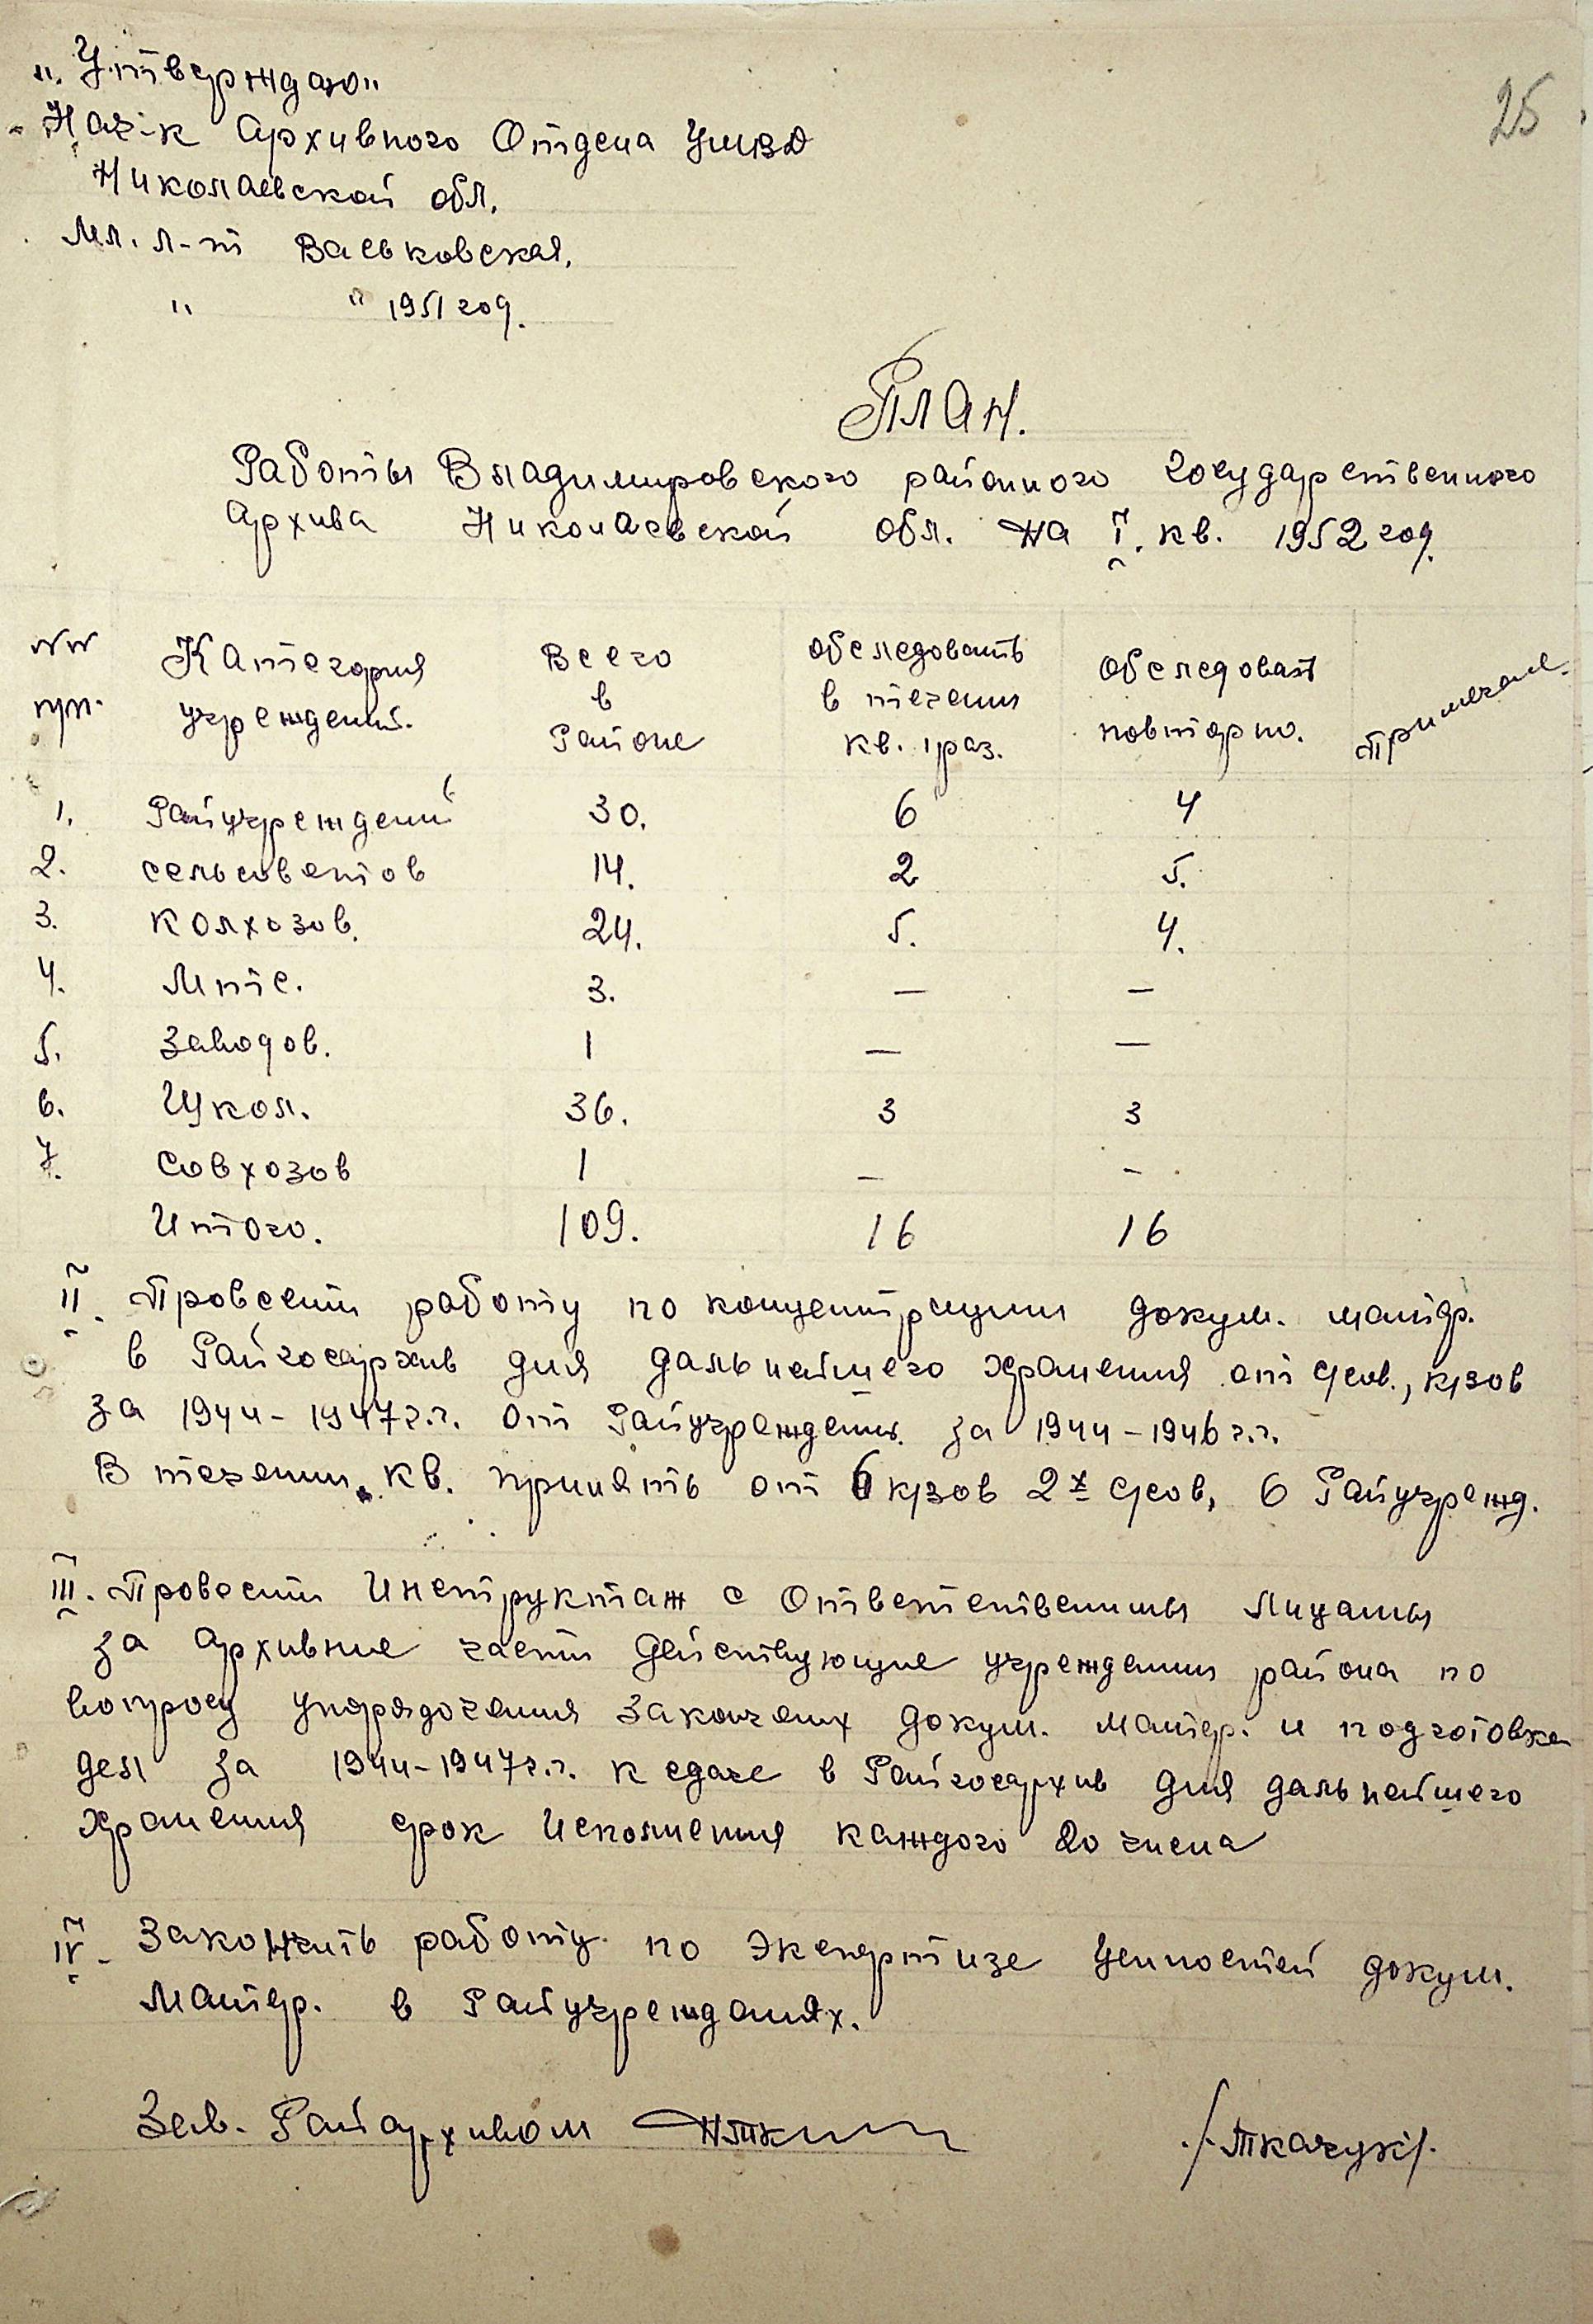 25
„Утверждаю"
Нач-к Архивного Отдела УМВД
Николаевской обл.
Мл. л-т Васьковская.
" " 1951 год.
План.
Работы Владимировского районного государственного
Архива Николаевской обл. на I. кв. 1952 год.
NN Категория Всего Обследовать Обследоват Примечание.
пп. учреждений. в в течении повторно.
Районе кв. 1 раз.
1. Райучреждений 30. 6 4
2. сельсоветов 14. 2 5.
3. Колхозов. 24. 5. 4.
4. Мтс. 3. — —
5. Заводов. 1 — —
6. Школ. 36. 3 3
7. Совхозов 1 — -
Итого. 109. 16 16
II. Провести работу по концентрации докум. матер.
в Райгосархив для дальнейшего хранения от с/сов., к/зов
за 1944-1947 г.г. от Райучрежден. за 1944-1946 г.г.
В течении кв. принять от 6 к/зов 2х с/сов, 6 Райучрежд.
III. Провести Инструктаж с Ответственными Лицами
за архивные части Действующие учреждении района по
вопросу упорядочения законченых докум. матер. и подготовке
дел за 1944-1947 г.г. к сдаче в Райгосархив для дальнейшего
хранения срок Исполнения каждого 20 числа
IV. Закончить работу по экспертизе ценностей докум.
Матер. в Райучрежданиях.
Зав. Райархивом /Ткачук/.